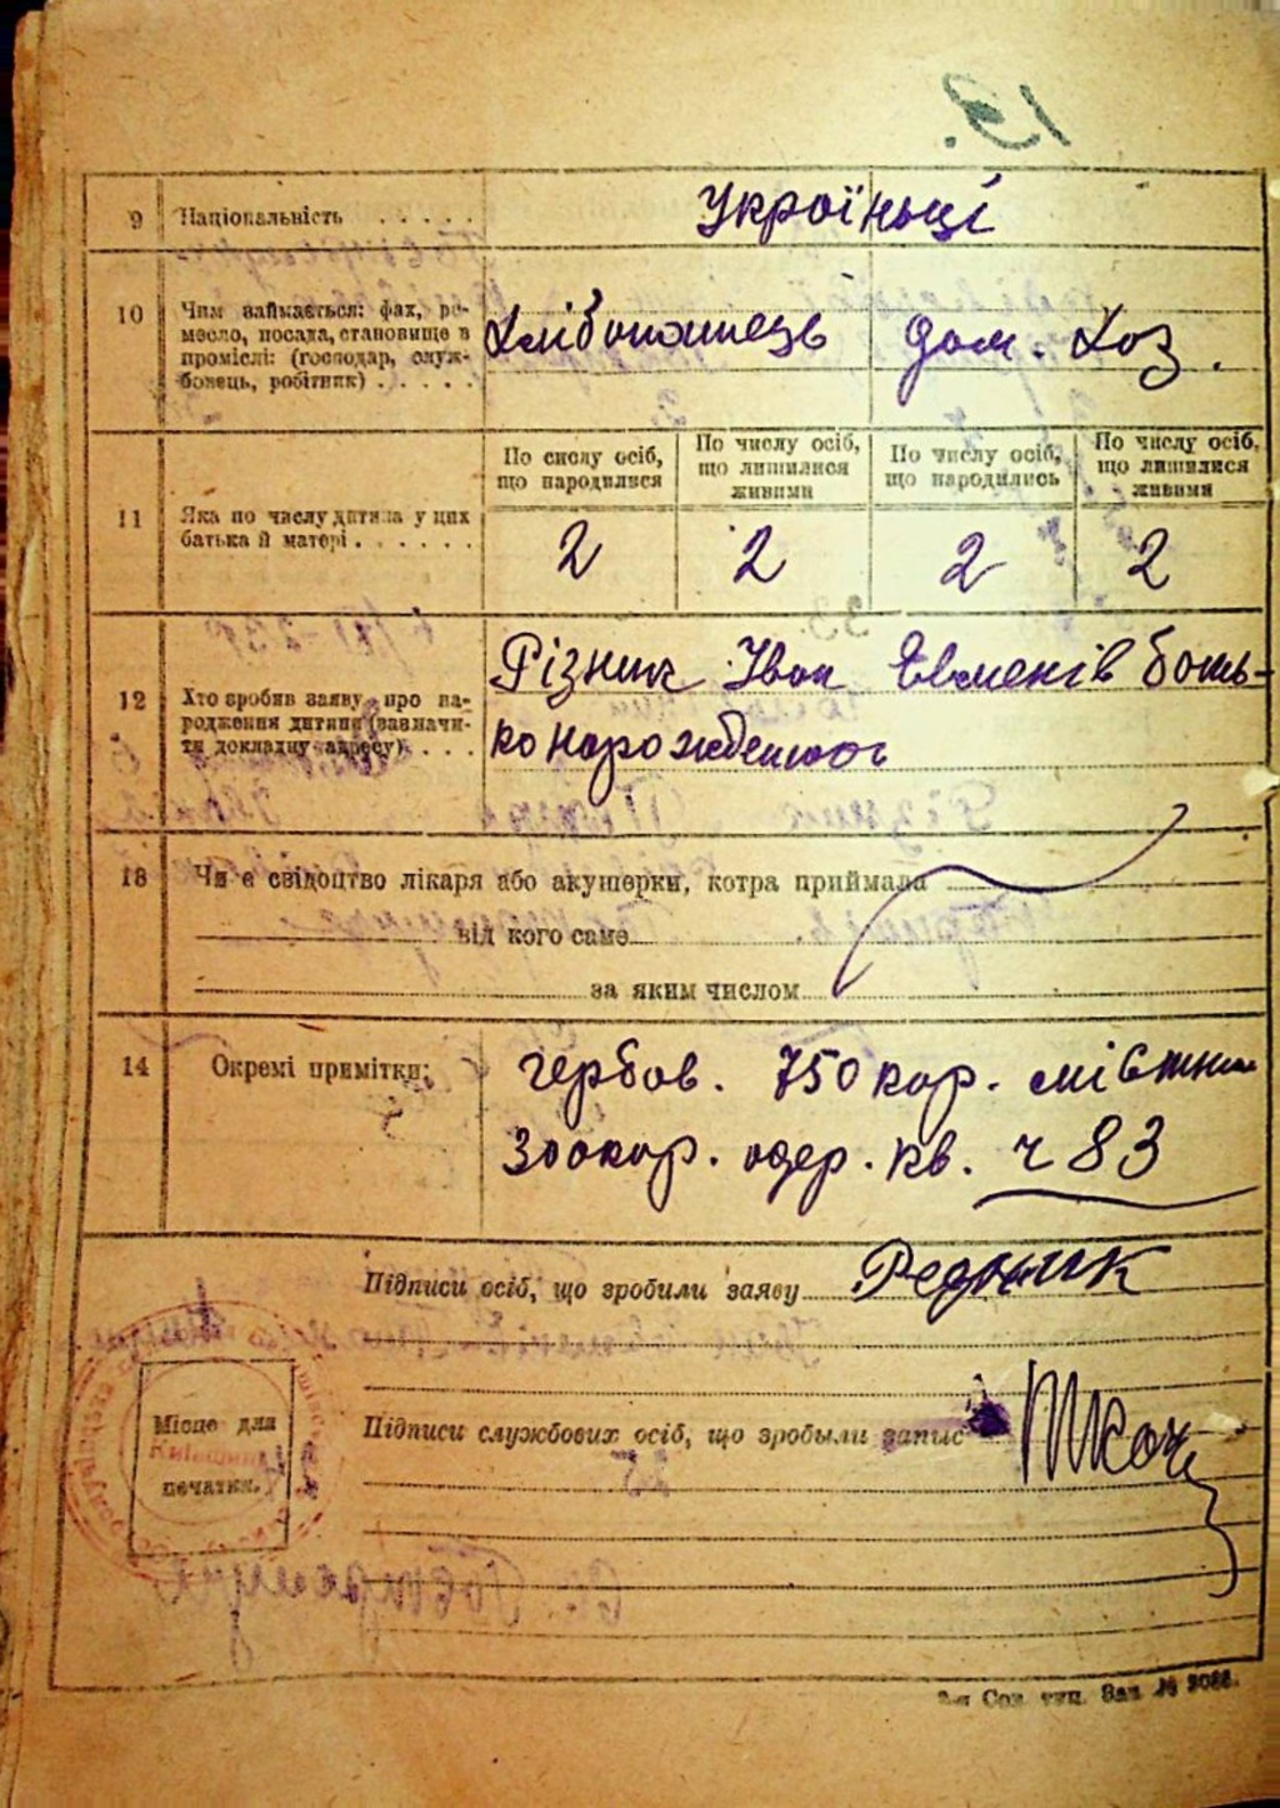 13.
9 Національність . . . . . Українці
10 Чим займається: фах, ре-
месло, посада, становище в
проміслі: (господар, служ-
бовець, робітник) . . . . .
Хлібопашець дом. Хоз.
По сислу осіб,
що народилися
По числу осіб,
що лишилися
живими
По числу осіб,
що народились
По числу осіб,
що лишилися
живими
11 Яка по числу дитина у цих
батька й матері . . . . . .
2 2 2 2
12 Хто зробив заяву про на-
родження дитини (зазначи-
ти докладну адресу) . . .
Різник Іван Евменів бать-
ко нарожденного
13 Чи є свідоцтво лікаря або акушерки, котра приймала
від кого саме
за яким числом
14 Окремі примітки:
гербов. 750 кар. містни
300 кар. одер. кв. ч 83
Підписи осіб, що зробили заяву Редник
Місце для
печатки.
Київщина
Підписи службових осіб, що зробыли запис Ткач
Зак. №